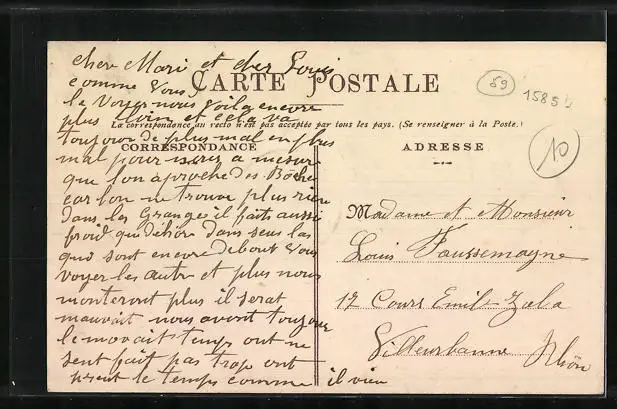 cher Mari et cher Louis
comme vous
CARTE POSTALE
le voyer nous voila encore
plus loin et cela va
La correspondance au recto n'est pas acceptée par tous les pays. (Se renseigner à la Poste.)
toujour de plus mal en plus
CORRESPONDANCE
mal pour mesure
que l'on aproche des Boche
car l'on ne trouve plus rien
dans les Granges il fait aussi
froid que dehors dans seus las
qui sont encore debout vous
voyer les autre et plus nous
monteront plus il serat
mauvait nous avont toujour
le movait temps ont ne
sent fait pas trop ont
prent le temps comme il vien
ADRESSE
Madame et Monsieur
Louis Faussemagne
17 Cours Emile Zola
Villeurbanne Rhône
59
15854
10